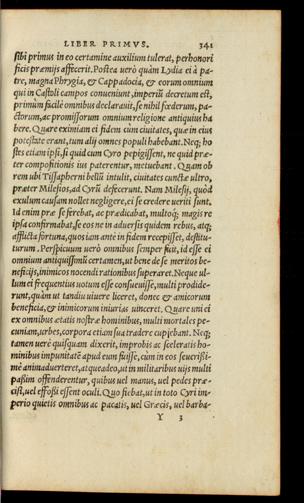 LIBER PRIMVS. 341
sibi primus in eo certamine auxilium tulerat, perhonori
ficis præmijs affecerit. Postea uerò quàm Lydia ei à pa-
tre, magna Phrygia, & Cappadocia, & eorum omnium
qui in Castoli campos conueniunt, imperiũ decretum est,
primùm facilè omnibus declarauit, se nihil fœderum, pa-
ctorum, ac promissorum omnium religione antiquius ha
bere. Quare eximiam ei fidem cum ciuitates, quæ in eius
potestate erant, tum alij omnes populi habebant. Neq; ho
stes etiam ipsi, si quid cum Cyro pepigissent, ne quid præ-
ter compositionis ius paterentur, metuebant. Quam ob
rem ubi Tissapherni bellũ intulit, ciuitates cunctæ ultro,
præter Milesios, ad Cyrũ defecerunt. Nam Milesij, quòd
exulum causam nollet negligere, ei se credere ueriti sunt.
Id enim præ se ferebat, ac prædicabat, multoq; magis re
ipsa confirmabat, se eos ne in aduersis quidem rebus, atq;
afflicta fortuna, quos iam antè in fidem recepisset, destitu-
turum. Perspicuum uerò omnibus semper fuit, id esse ei
omnium antiquissimũ certamen, ut bene de se meritos be-
neficijs, inimicos nocendi rationibus superaret. Neque ul-
lum ei frequentius uotum esse consueuisse, multi prodide-
runt, quàm ut tandiu uiuere liceret, donec & amicorum
beneficia, & inimicorum iniurias uinceret. Quare uni ei
ex omnibus ætatis nostræ hominibus, multi mortales pe-
cuniam, urbes, corpora etiam sua tradere cupiebant. Neq;
tamen uerè quisquam dixerit, improbis ac sceleratis ho-
minibus impunitatẽ apud eum fuisse, cùm in eos seuerißi-
mè animaduerteret, atque adeo, ut in militaribus uijs multi
paßim offenderentur, quibus uel manus, uel pedes præ-
cisi, uel effoßi essent oculi. Quo fiebat, ut in toto Cyri im-
perio quietis omnibus ac pacatis, uel Græcis, uel barba-
Y 3